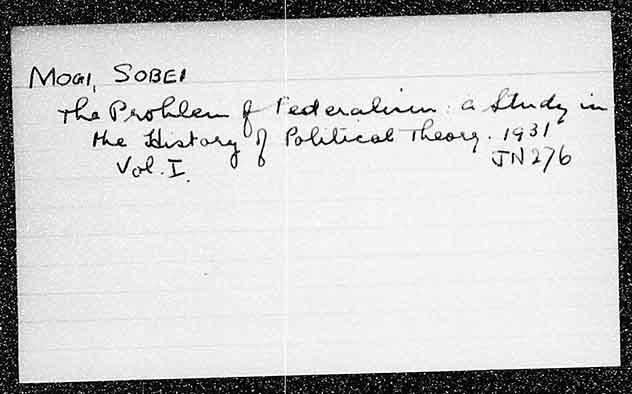 MOGI, SOBEI
The Problem of Federalism: a Study in
the History of Political Theory. 1931
Vol. I. JN276